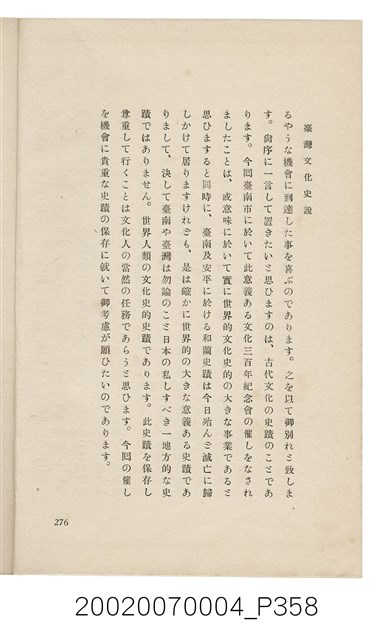 臺灣文化史說
るやうな機會に到達した事を喜ぶのであります。之を以て御別れと致しま
す。尙序に一言して置きたいと思ひますのは、古代文化の史蹟のことであ
ります。今囘臺南市に於いて此意義ある文化三百年紀念會の催しをなされ
ましたことは、或意味に於いて實に世界的文化史的の大きな事業であると
思ひますると同時に、臺南及安平に於ける和蘭史蹟は今日殆んど滅亡に歸
しかけて居りますけれども、是は確かに世界的の大きな意義ある史蹟であ
りまして、決して臺南や臺灣は勿論のこと日本の私しすべき一地方的な史
蹟ではありません。世界人類の文化史的史蹟であります。此史蹟を保存し
尊重して行くことは文化人の當然の任務であらうと思ひます。今囘の催し
を機會に貴重な史蹟の保存に就いて御考慮が願ひたいのであります。
276
20020070004_P358